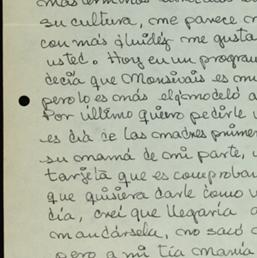 su cultura, me parece
con más fluidez me gusta
usted. Hoy en un program
decía que Monsivais es mu
pero lo es más el modelo a
Por último quiero pedirle u
es día de las madres prime
su mamá de mi parte, u
tarjeta que es comproba
que quisiera darle como u
día, creí que llegaría a
mandársela, no sacó
pero a mi tía María